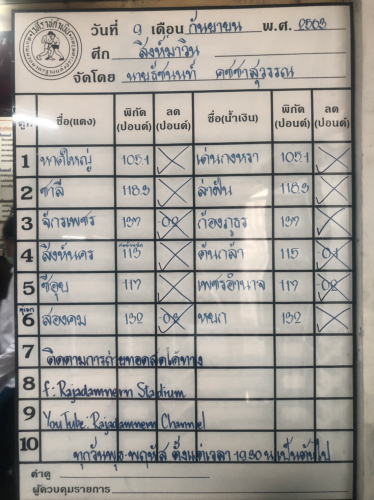 วันที่ 9 เดือน กันยายน พ.ศ. 2563
ศึก สิงห์มาวิน
จัดโดย นายธัชนนท์ คชชาสุวรรณ
คู่ ชื่อ(แดง) พิกัด (ปอนด์) ลด (ปอนด์) ชื่อ(น้ำเงิน) พิกัด (ปอนด์) ลด (ปอนด์)
1 หาดใหญ่ 105.1 เด่นกงหรา 105.1
2 ชาลี 118.3 ล่าฝัน 118.3
3 จักรเพชร 137 0.2 ก้องภูธร 137
4 สิงห์นคร 113 ต้นกล้า 115 0.1
5 ซีอุย 117 เพชรอำนาจ 117 0.2
6 สองคม 132 0.3 หยก 132
7 ติดตามการถ่ายทอดสดได้ทาง
8 f: Rajadamnern Stadium
9 YouTube: Rajadamnern Channel
10 ทุกวันพุธ-พฤหัส ตั้งแต่เวลา 19.30 น. เป็นต้นไป
คำดู
ผู้ควบคุมรายการ